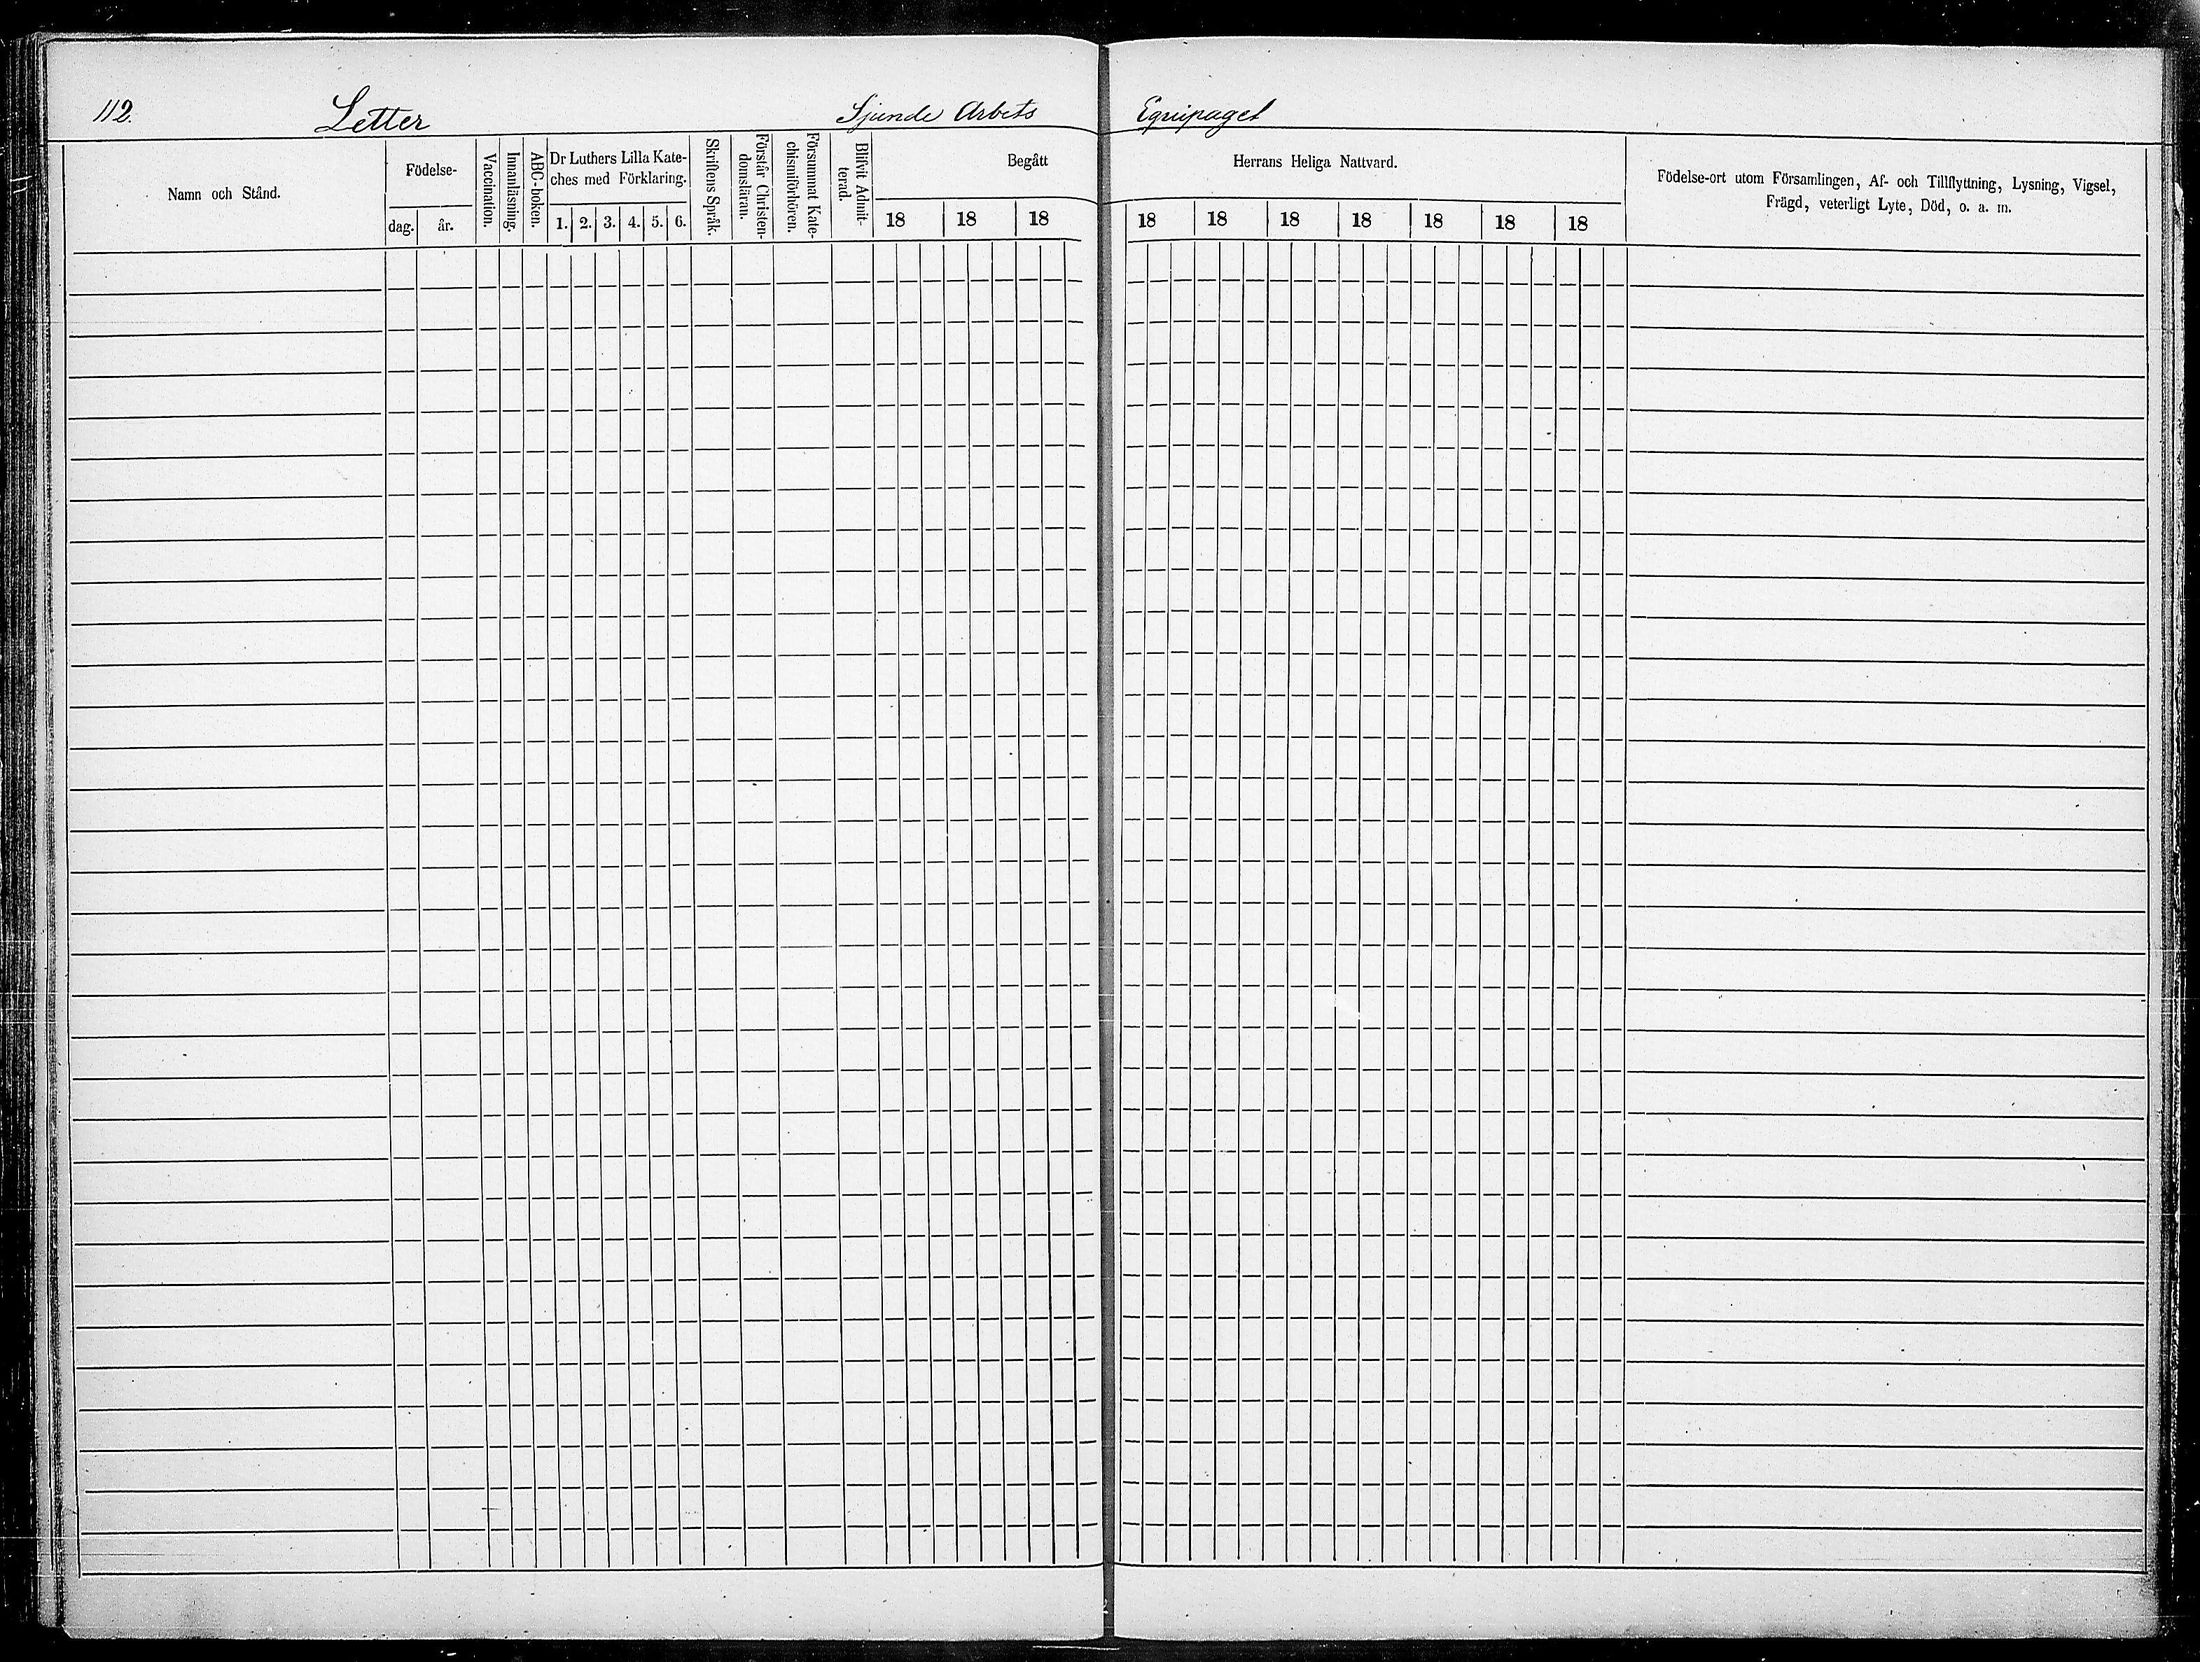 112. Letter Sjunde Arbets Equipaget
Namn och Stånd.
Födelse-
dag. år.
Vaccination.
Innanläsning.
ABC-boken.
Dr Luthers Lilla Kate-
ches med Förklaring.
1. 2. 3. 4. 5. 6.
Skriftens Språk.
Förstår Christen-
domsläran.
Försummat Kate-
chismiförhören.
Blifvit Admit-
terad.
Begått Herrans Heliga Nattvard.
18 18 18 18 18 18 18 18 18 18
Födelse-ort utom Församlingen, Af- och Tillflyttning, Lysning, Vigsel,
Frägd, veterligt Lyte, Död, o. a. m.